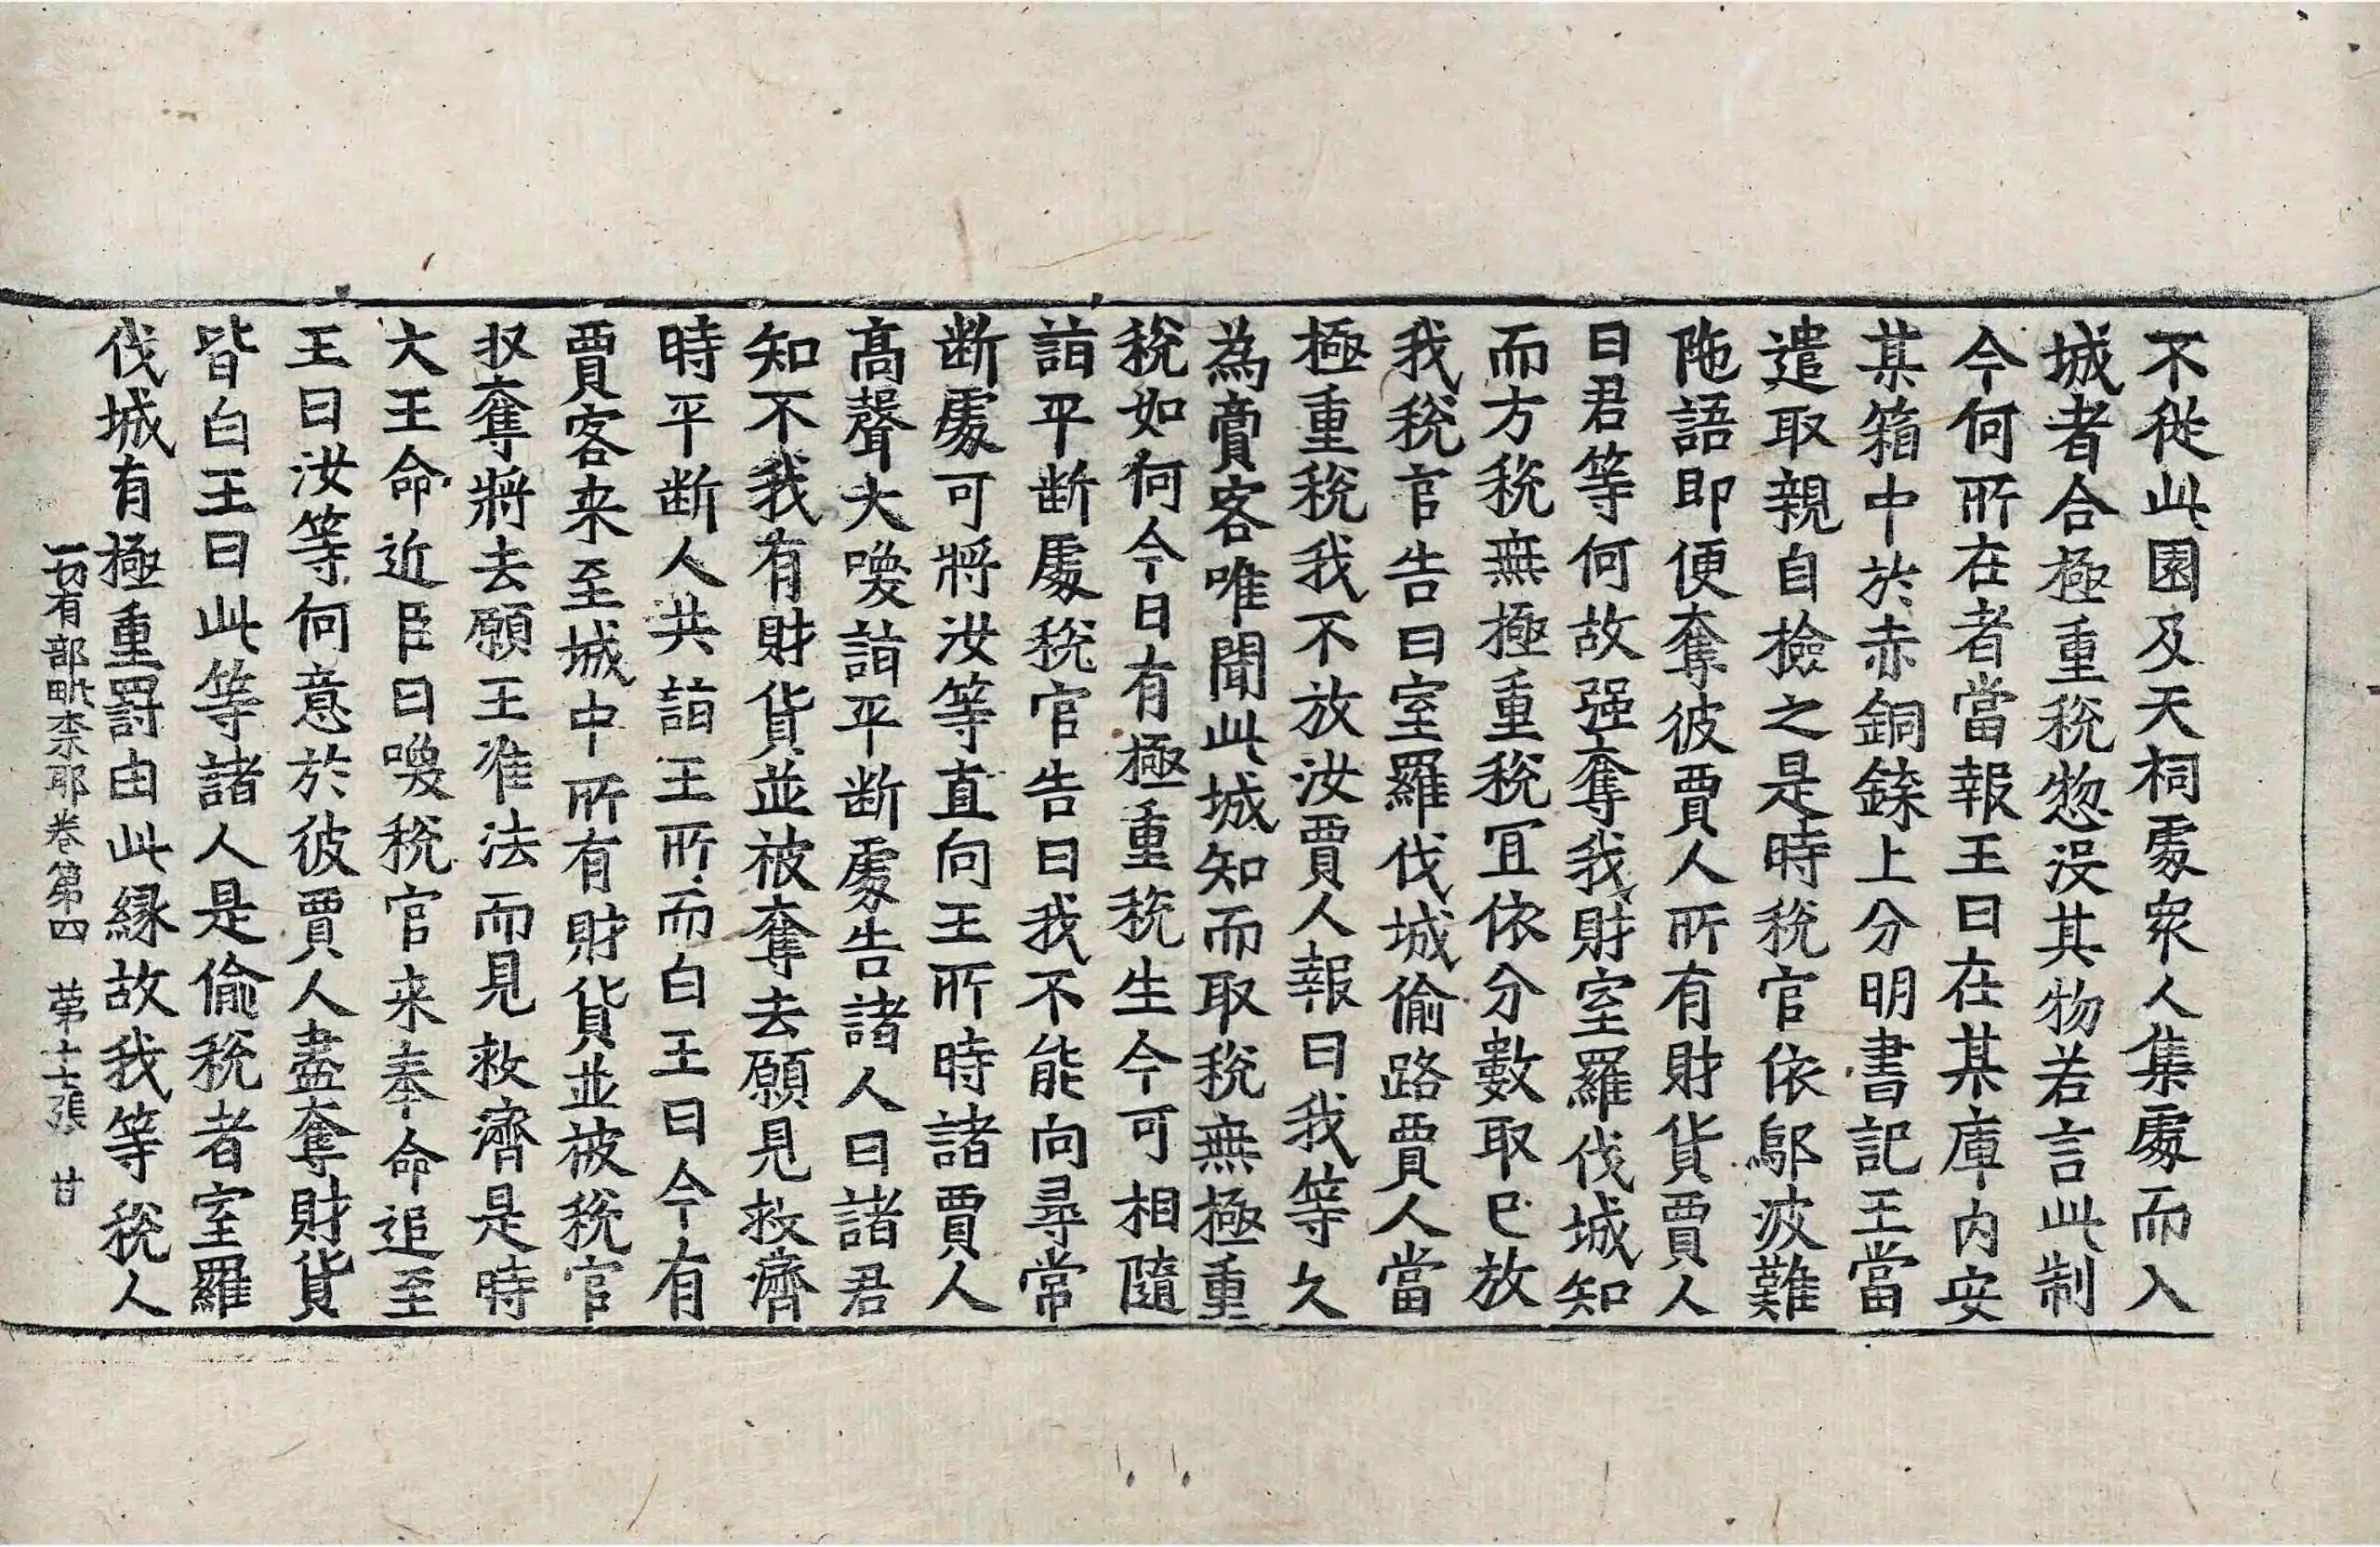 不從此園及天祠處衆人集處而入
城者合極重稅惣没其物若言此制
今何所在者當報王曰在某庫内安
某箱中於赤銅鍱上分明書記王當
遣取親自撿之是時稅官依鄔波難
陁語即便奪彼賈人所有財貨賈人
曰君等何故强奪我財室羅伐城知
而方稅無極重稅冝依分數取已放
我稅官告曰室羅伐城偷路賈人當
極重稅我不放汝賈人報曰我等久
為賣客唯聞此城知而取稅無極重
稅如何今日有極重稅生今可相隨
詣平斷處稅官告曰我不能向尋常
断處可將汝等直向王所時諸賈人
高聲大喚詣平断處告諸人曰諸君
知不我有財貨並被奪去願見救濟
時平断人共詣王所而白王曰今有
賈客来至城中所有財貨並被稅官
収奪將去願王准法而見救濟是時
大王命近臣曰喚稅官来奉命追至
王曰汝等何意於彼賈人盡奪財貨
皆白王曰此等諸人是偷稅者室羅
伐城有極重罸由此縁故我等稅人
一切有部毗柰耶卷第四 苐十七張 甘